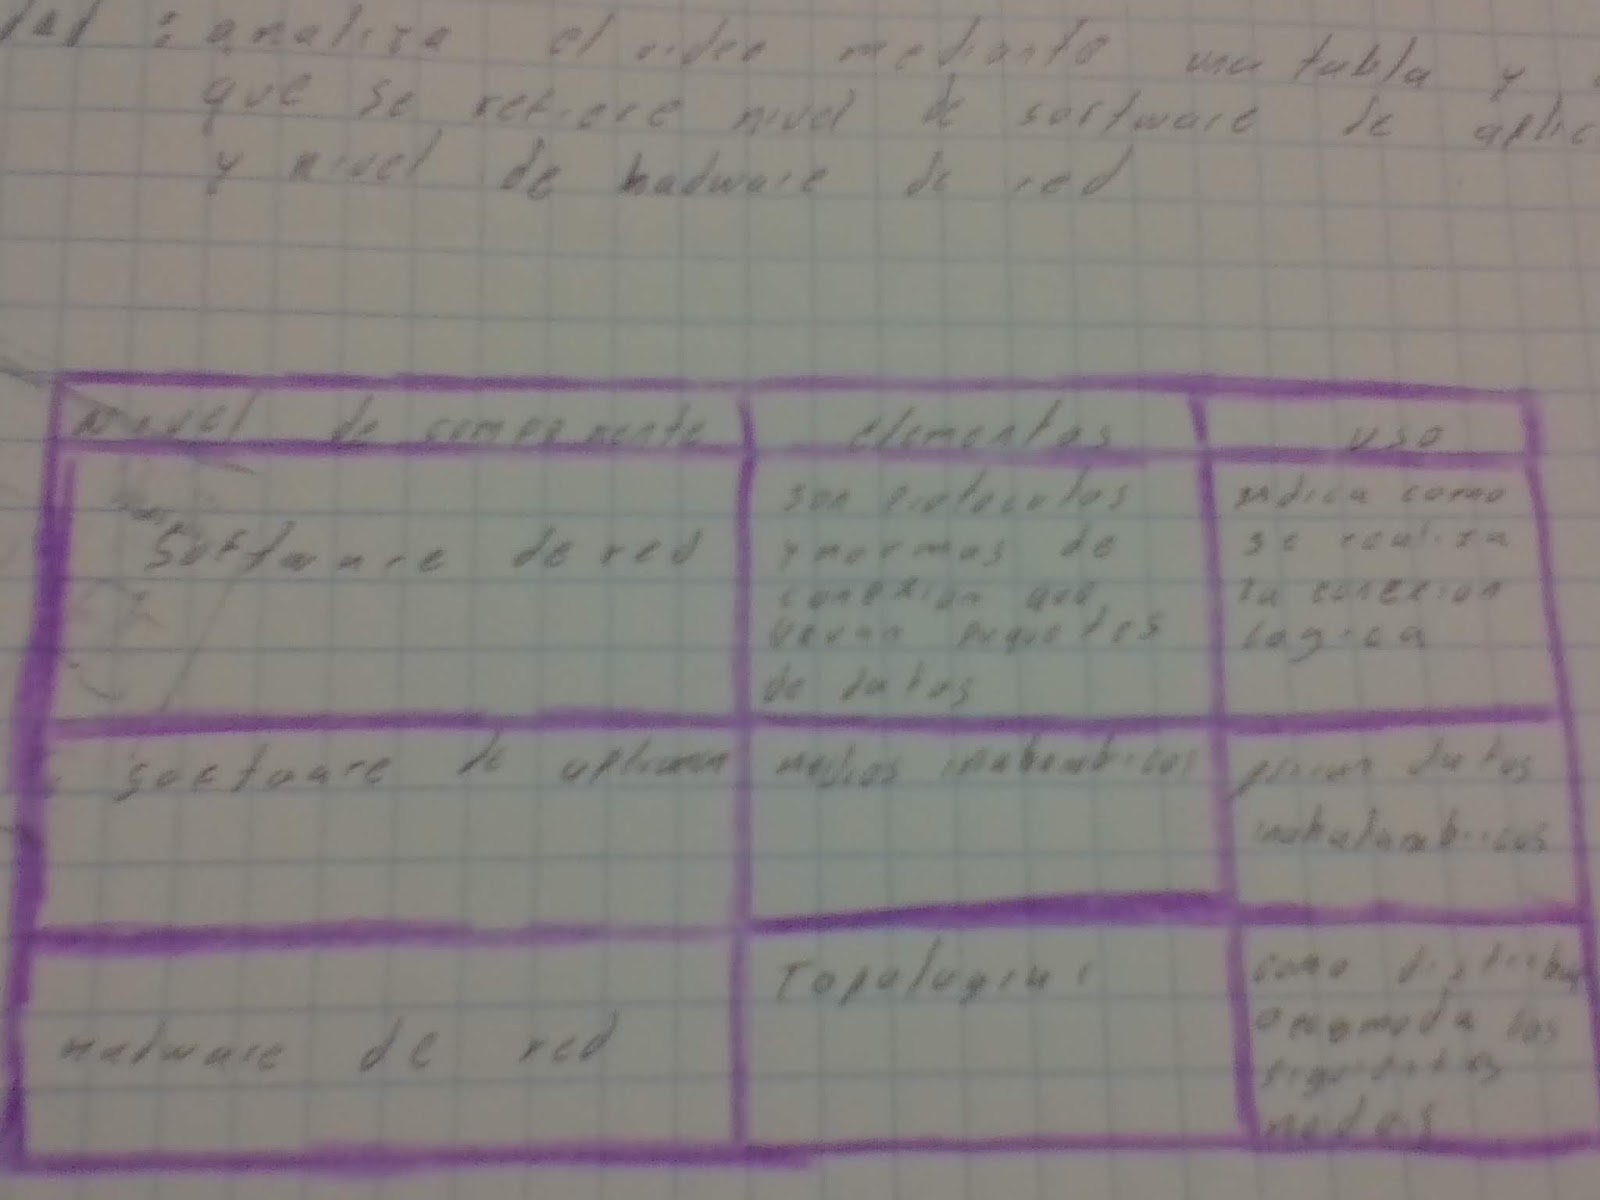 dad : analiza el video mediante una tabla y
que se refiere nivel de software de aplic
y nivel de hadware de red
Nivel de componente
elementos
uso
Software de red
son protocolos
y normas de
conexion que
llevan paquetes
de datos
indica como
se realiza
la conexion
logica
software de
medios inalambricos
datos
inhalambricos
hadware de red
Topologia :
como distribuy
o acomoda los
siguientes
nodos